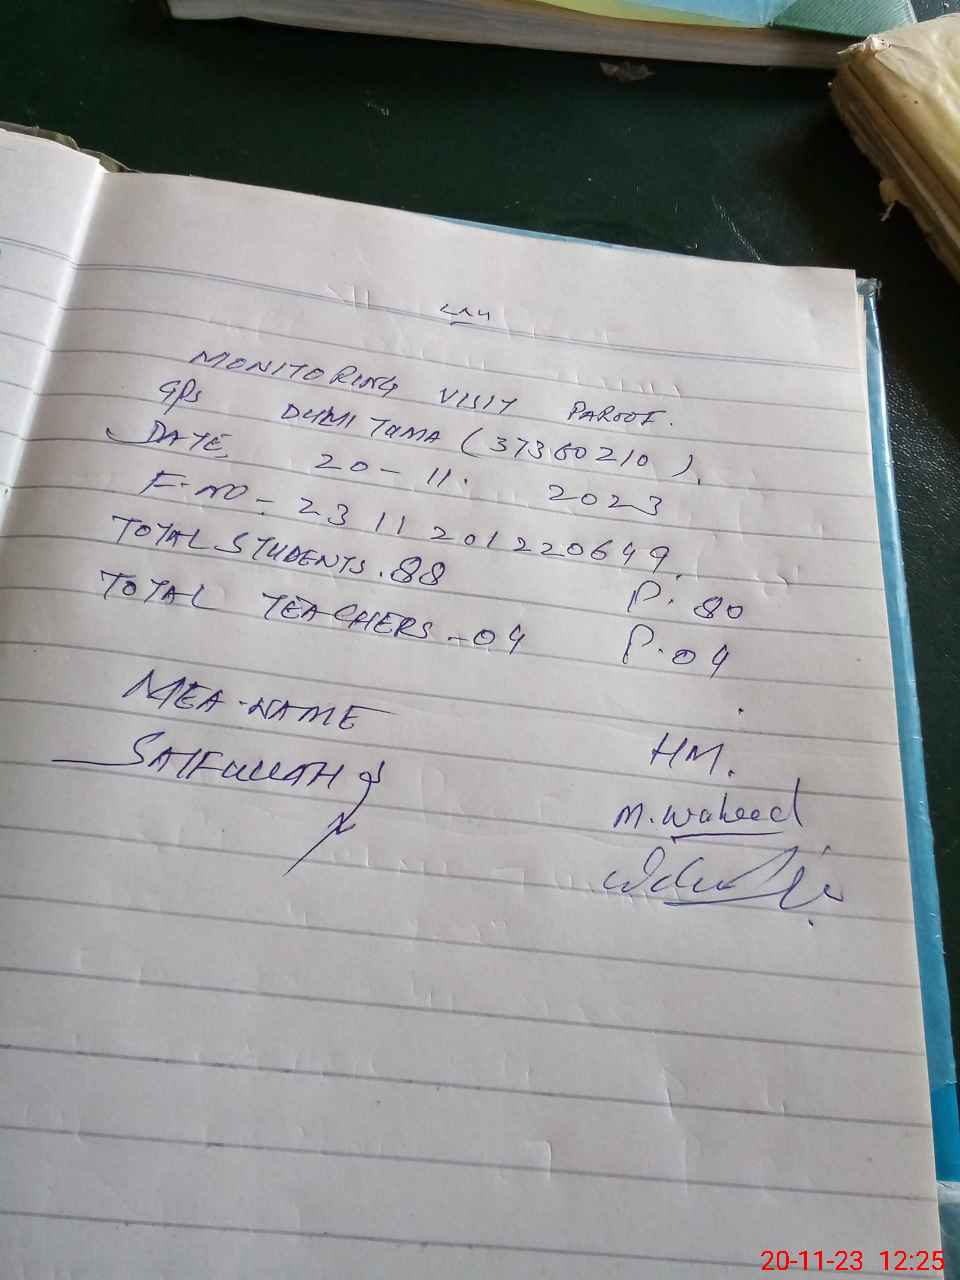 MONITORING VISIT PAROOF.
GPS DUMI TAMA (37360210).
DATE, 20-11. 2023
F-NO- 2311201220649.
TOTAL STUDENTS. 88 P. 80
TOTAL TEACHERS - 04 P. 04
MEA-NAME
HM.
SAIFULLAH
M. Waheed
20-11-23 12:25